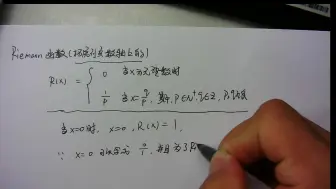 Riemann 函数(拓展到实数轴上的)
R(x) = { 0 当x为无理数时
1/p 当x=q/p, 其中, p∈N⁺, q∈Z, p,q互质
当x=0时, x=0, R(x)=1,
∵ x=0 可以写为 0/1, 并且 为了